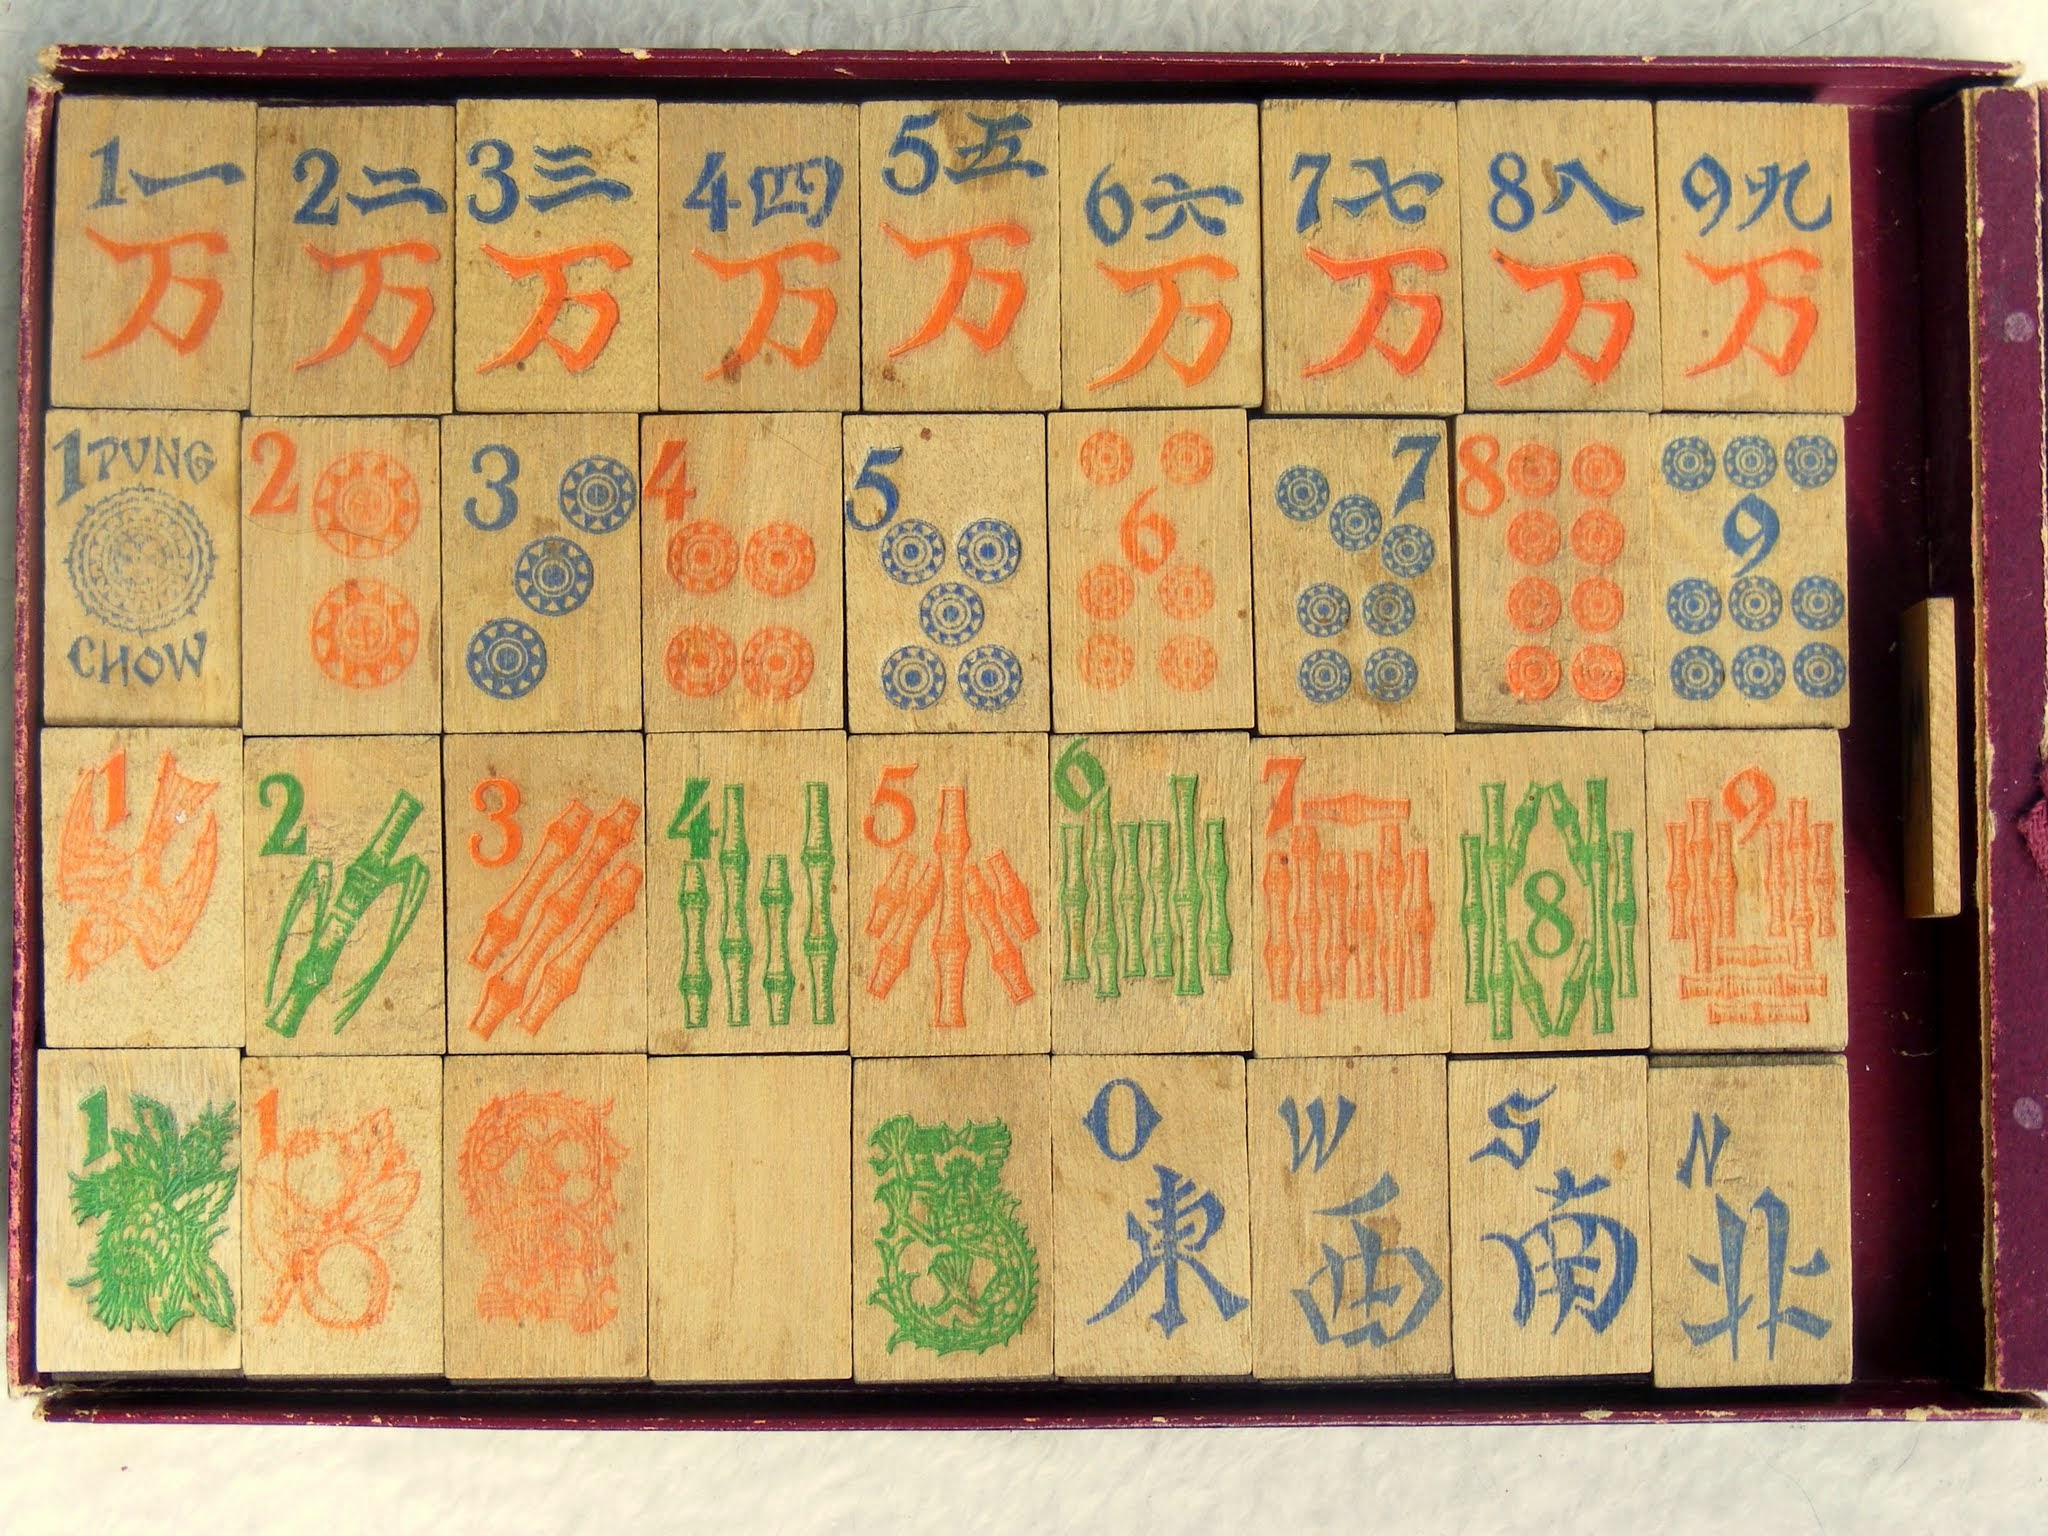 1一 2二 3三 4四 5五 6六 7七 8八 9九
万 万 万 万 万 万 万 万 万
1 PUNG 2 3 4 5 6 7 8 9
CHOW
1 2 3 4 5 6 7 8 9
1 1 O W S N
東 西 南 北